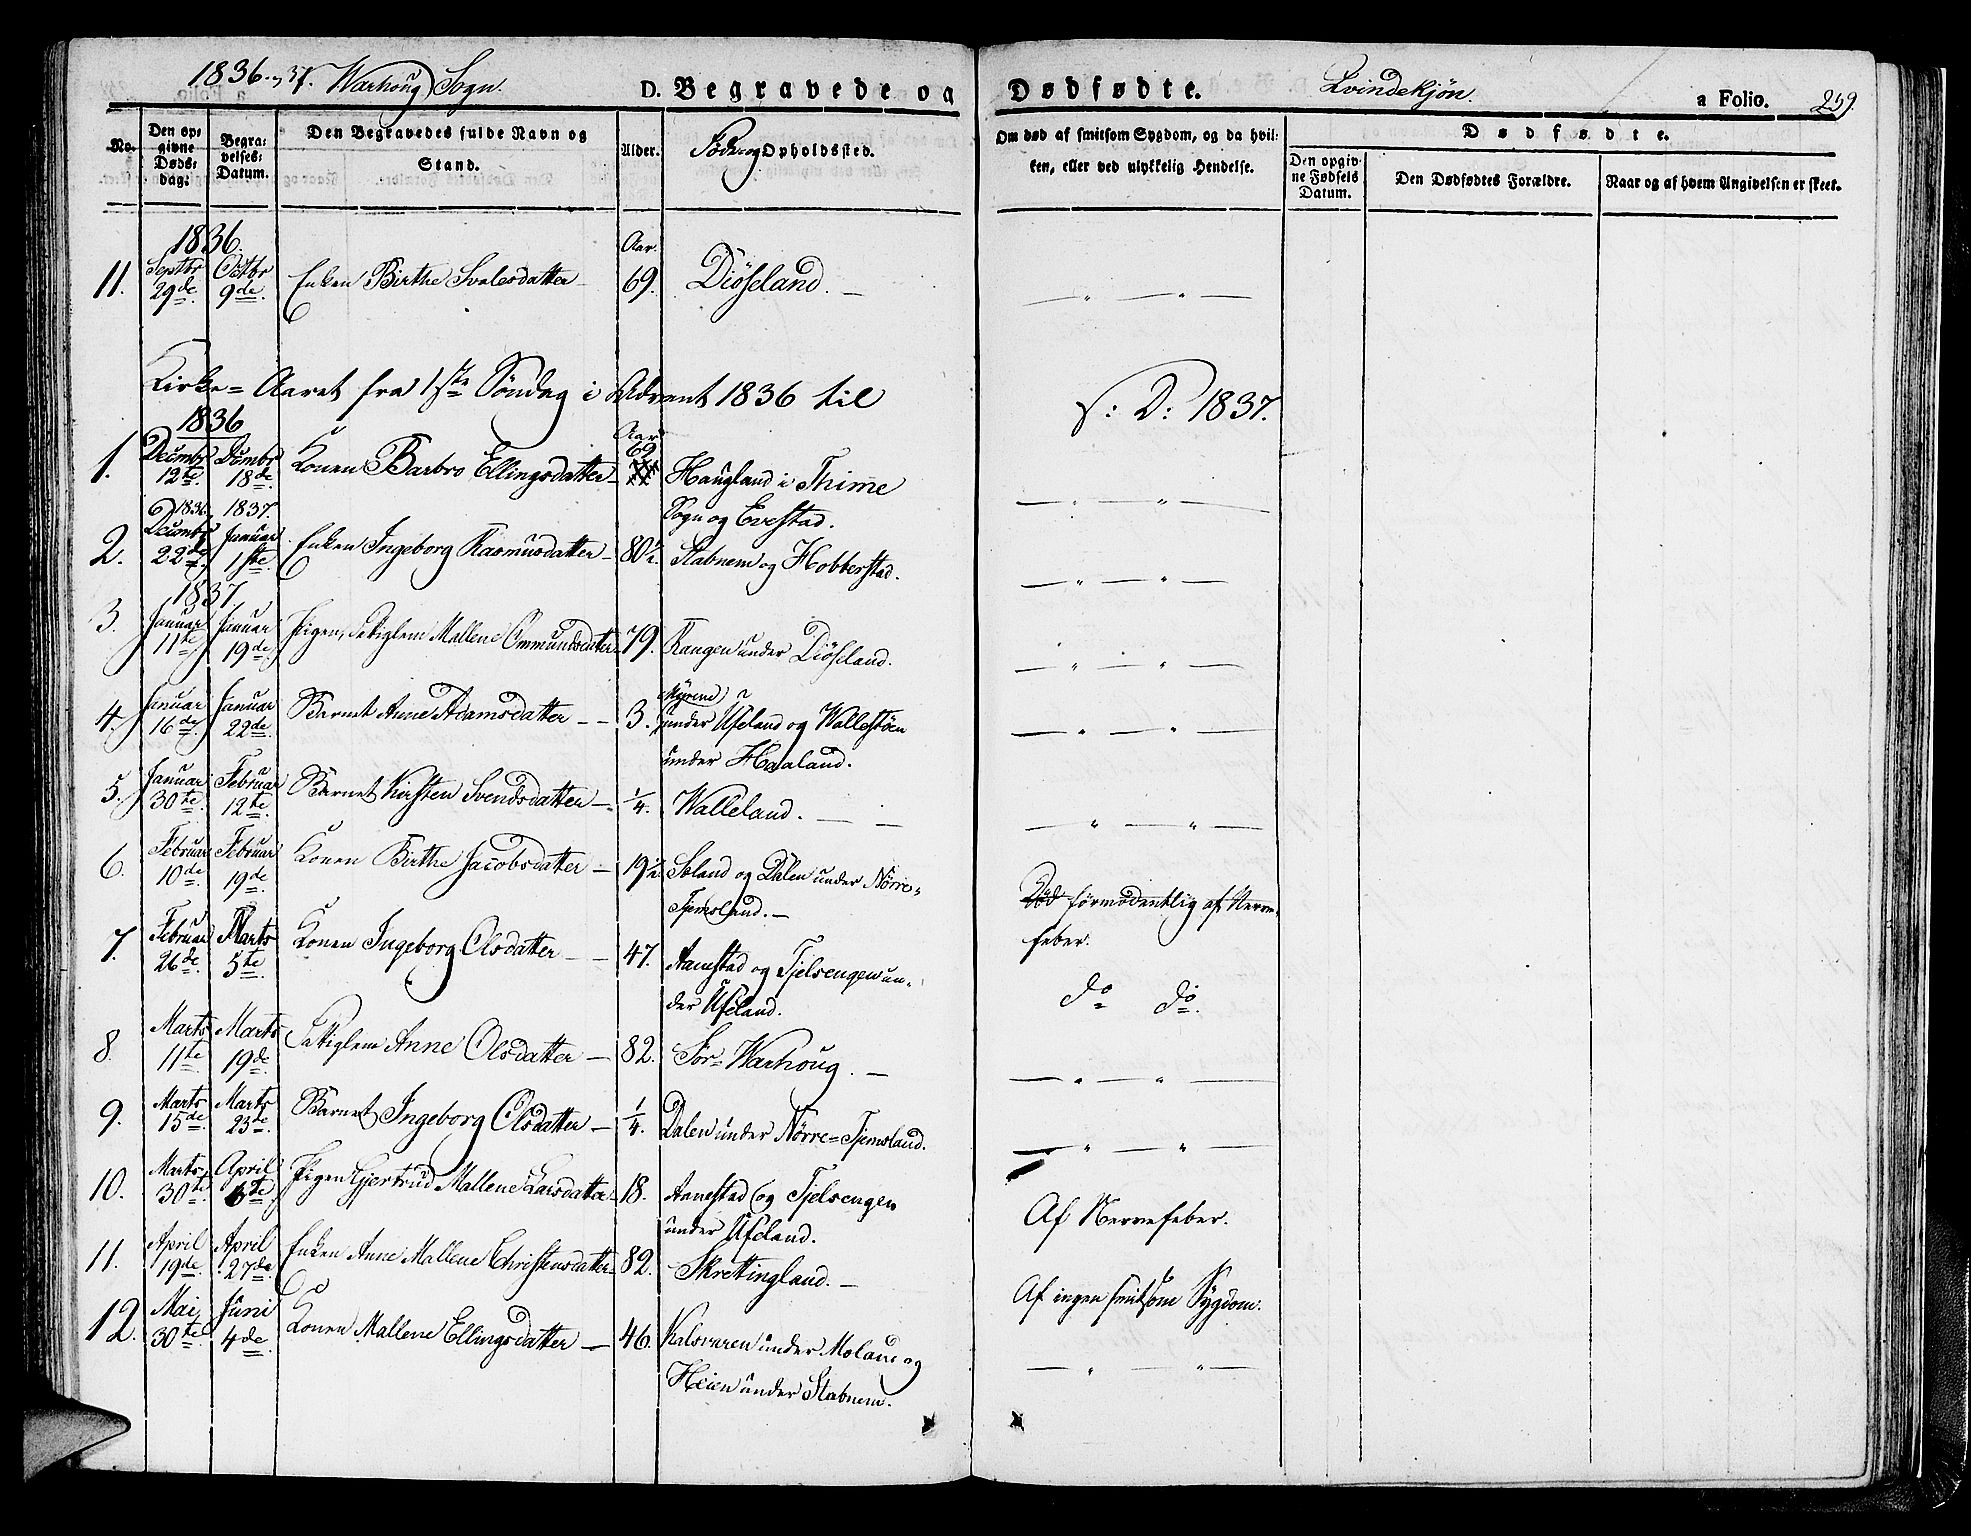 1836 og 37. Warhoug Sogn.
D. Begravede og
Dødfødte.
Qvindekjøn.
a Folio.
259.
No.
Den opgivne Døds-dag.
Begravelses-Datum.
Den Begravedes fulde Navn og Stand.
Alder.
Føde og Opholdssted.
Om død af smitsom Sygdom, og da hvilken, eller ved ulykkelig Hendelse.
Dødfødte.
Den opgivne Fødsels Datum.
Den Dødfødtes Forældre.
Naar og af hvem Angivelsen er skeet.
1836. Aar.
11. Septbr 29de Octbr 9de. Enken Birthe Svalesdatter – 69. Diøseland. — — „ — „ —
Kirke=Aaret fra 1ste Søndag i Advent 1836 til s: D: 1837.
1836 Aar
1. Decembr 12te Decembr 18de Konen Barbro Ellingsdatter – 69 Haugland i Thime
Sogn og Evestad. — „ — „ —
2. 1836. Decembr 22de 1837. Januar 1ste Enken Ingeborg Rasmusdatter – 80½. Stabnem og Hobberstad. — „ — „ —
1837
3. Januar 11te Januar 19de Pigen, Mallene Ommundsdatter – 79. Kangen under Diøseland. — „ — „ —
4. Januar 16de Januar 22de Barnet Anne Adamsdatter – – 3. Myrene
under Ueland og Wallestøen
under Haaland. — „ — „ —
5. Januar 30te Februar 12te Barnet Kirsten Svendsdatter – ¼. Walleland. — — — „ — „ —
6. Februar 10de Februar 19de Konen Birthe Jacobsdatter – 19½ Soland og Dalen under Nørre=
Tjemsland. — Død formodentlig af Nerve-
feber.
7. Februar 26de Marts 5te Konen Ingeborg Olsdatter – – 47. Aanestad og Tjelsengen un-
der Ueland. do do.
8. Marts 11te Marts 19de Anne Olsdatter – 82. Sør=Warhoug. — — „ — „ —
9. Marts 15de Marts 23de Barnet Ingeborg Olsdatter – ¼. Dalen under Nørre=Tjemsland. — „ — „ —
10. Marts 30te April 6te Pigen Gjertrud Mallene Larsdatter – 18. Aanestad og Tjelsengen
under Ueland. Af Nervefeber.
11. April 19de April 27de Enken Anne Mallene Christensdatter – 82. Skrettingland. — Af ingen smitsom Sygdom.
12. Mai 30te Juni 4de Konen Mallene Ellingsdatter – 46. Kalsvaren under Molaug og
Heien under Stabnem. — „ — „ —